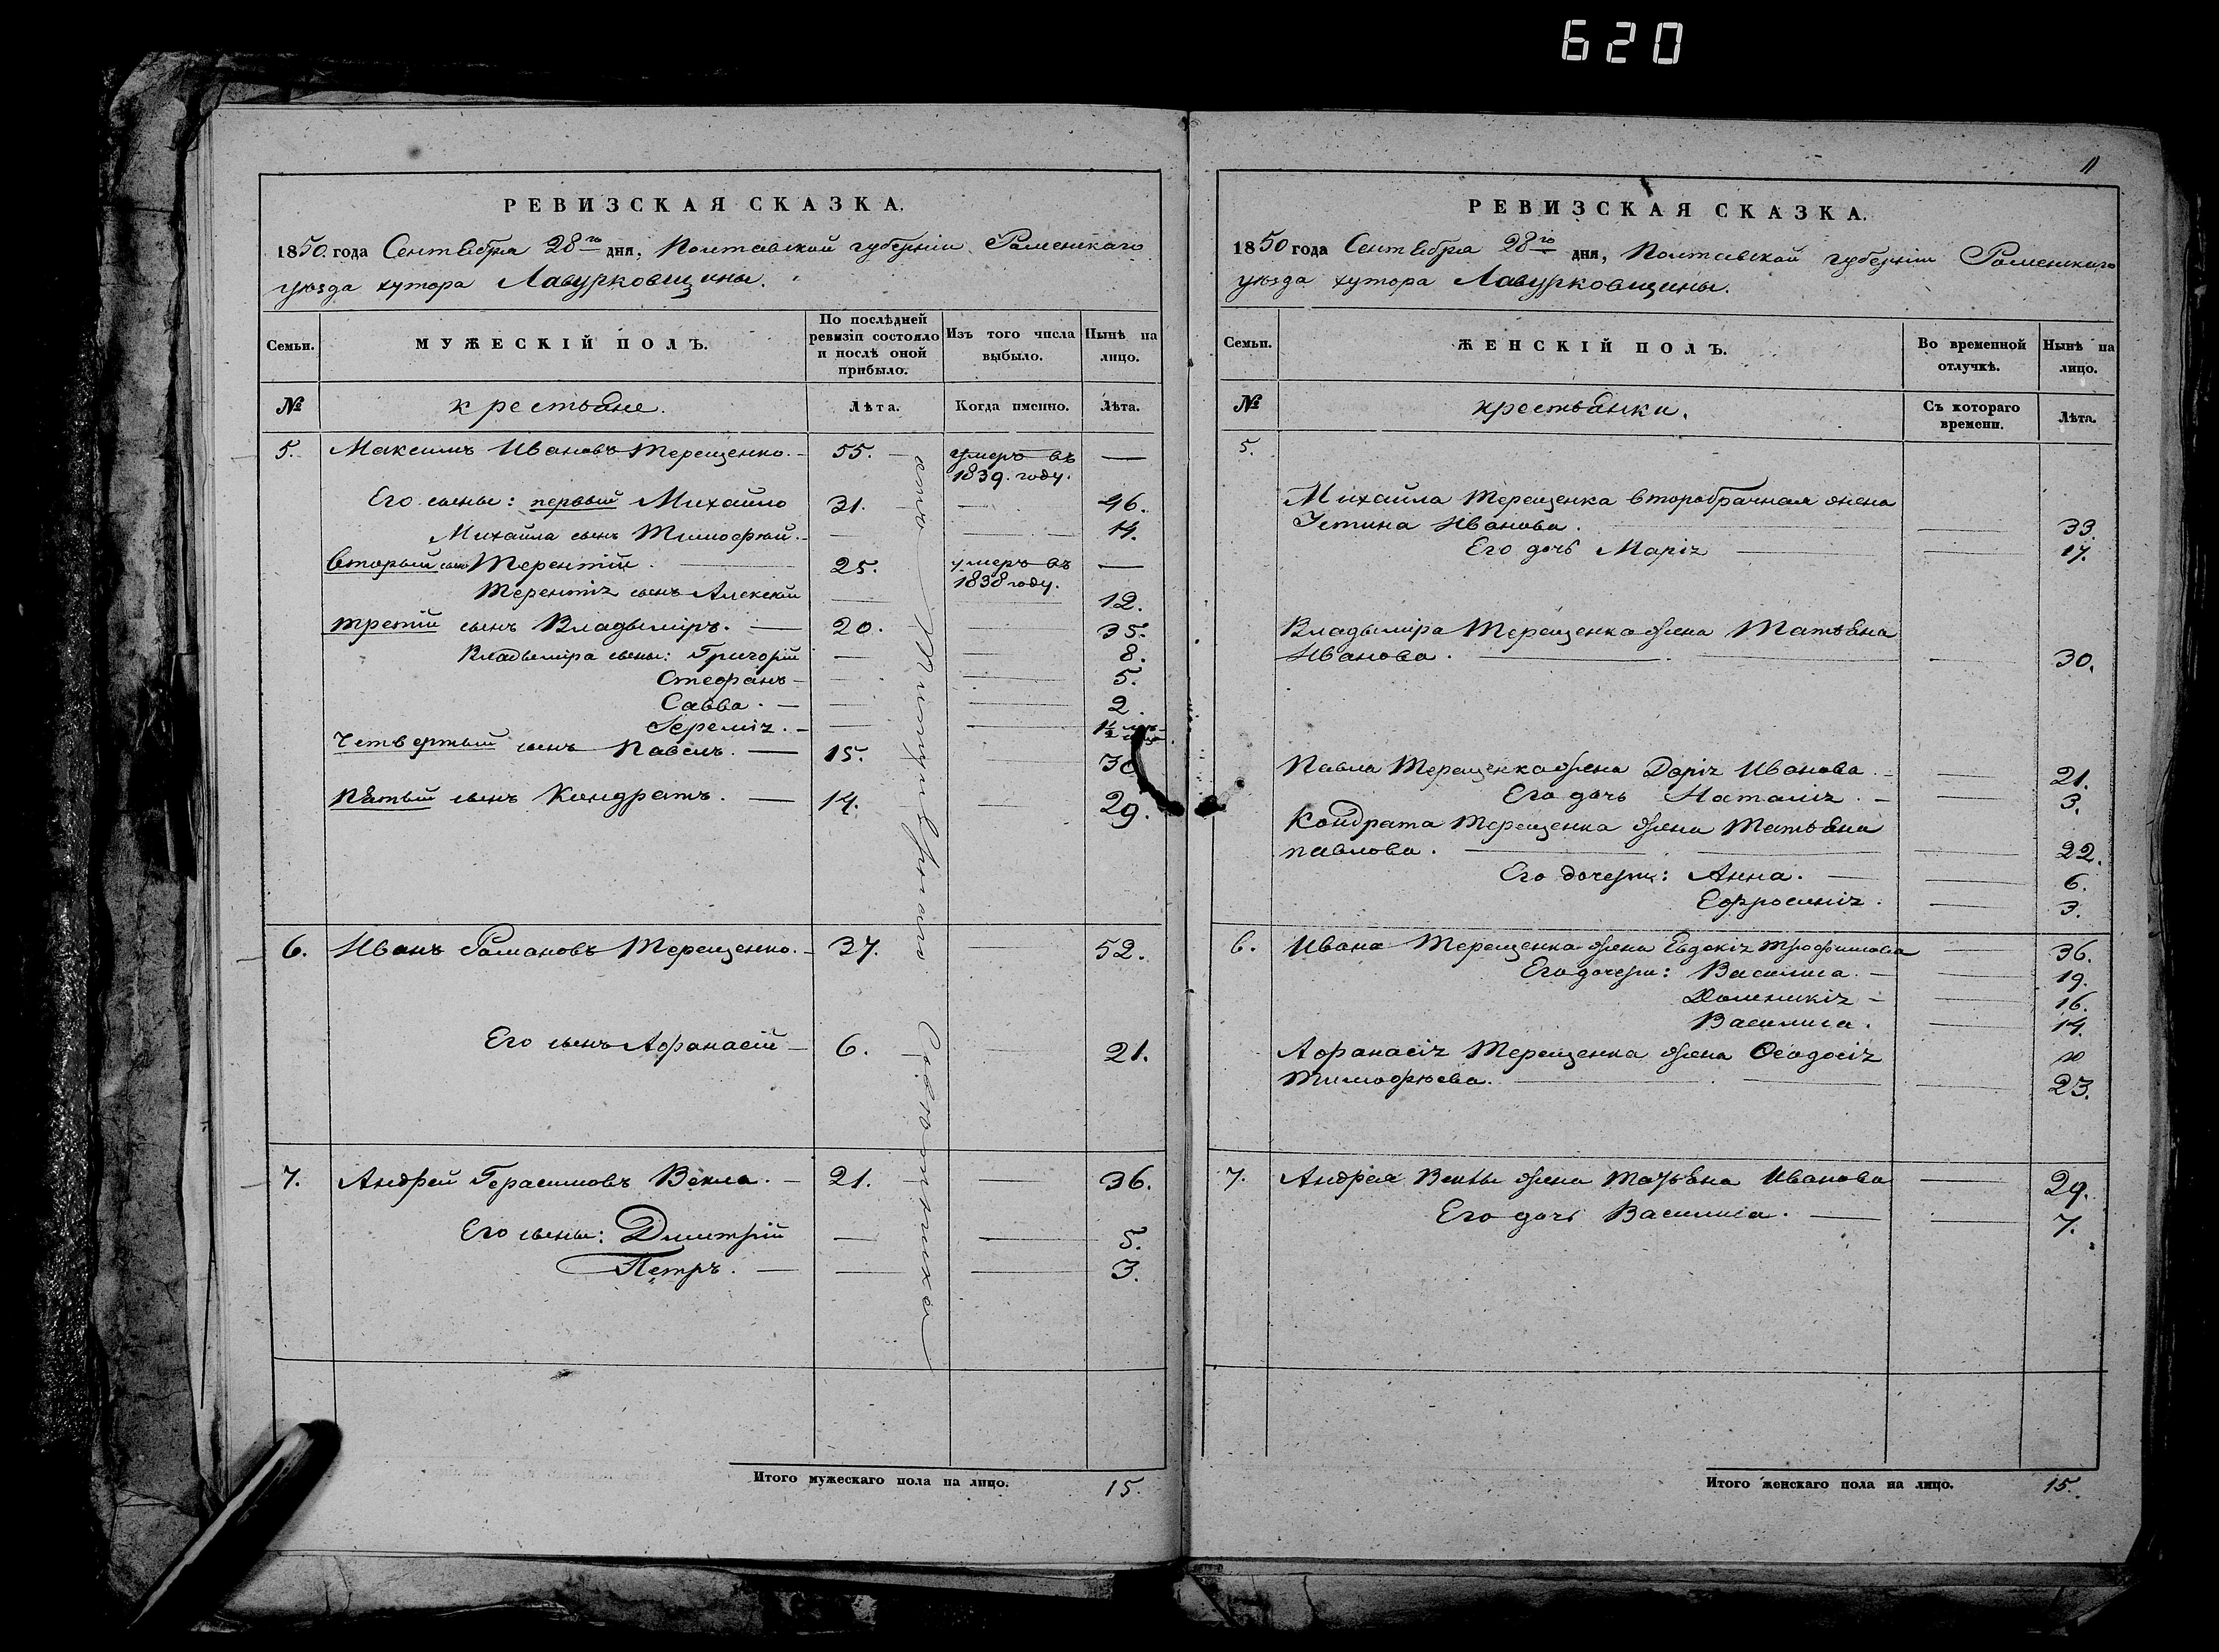 620
РЕВИЗСКАЯ СКАЗКА.
1850. года Сентября 28го дня, Полтавской губерніи Роменскаго
уѣзда хутора Лавурковщины.
Семьи.
МУЖЕСКІЙ ПОЛЪ.
По послѣдней ревизіи состояло и послѣ оной прибыло.
Изъ того числа выбыло.
Нынѣ на лицо.
№
крестьяне.
Лѣта.
Когда именно.
Лѣта.
5. Максимъ Ивановъ Терещенко. 55. умеръ въ 1839. году. —
Его сыны: первый Михайло 31. — 46.
Михайла сынъ Тимофѣй. — — 14.
Вторый сынъ Терентій. 25. умеръ въ 1838 году. —
Терентія сынъ Алексѣй — — 12.
Третій сынъ Владыміръ. — 20. — 35.
Владыміра сыны: Григорій — — 8.
Стефанъ — — 5.
Савва. — — 2.
Іеремія. — — 1/2
Четвертый сынъ Павелъ. — 15. 30
Пятый сынъ Кондратъ. — 14. — 29.
6. Иванъ Романовъ Терещенко. 37. — 52.
Его сынъ Афанасій 6. — 21.
7. Андрей Герасимовъ Векла. 21. — 36.
Его сыны: Дмитрій — — 5.
Петръ. — — 3.
Итого мужескаго пола на лицо. 15.
11
РЕВИЗСКАЯ СКАЗКА.
1850 года Сентября 28го дня, Полтавской губерніи Роменскаго
уѣзда хутора Лавурковщины.
Семьи.
ЖЕНСКІЙ ПОЛЪ.
Во временной отлучкѣ.
Нынѣ на лицо.
№
крестьянки.
Съ котораго времени.
Лѣта.
5.
Михайла Терещенка второбрачная жена
Устина Иванова. 33.
Его дочь Марія 17.
Владыміра Терещенка жена Татьяна
Иванова. — 30.
Павла Терещенка жена Дарія Иванова — 21.
Его дочь Наталія. — 3.
Кондрата Терещенка жена Татьяна
Павлова. — 22.
Его дочери: Анна. — 6.
Ефросинія. — 3.
6. Ивана Терещенка жена Евдокія Трофимова — 36.
Его дочери: Василиса. — 19.
Доминикія — 16.
Василиса. — 14.
Афанасія Терещенка жена Феодосія
Тимофѣева. — 23.
7. Андрея Веклы жена Татьяна Иванова — 29.
Его дочь Василиса. — 7.
Итого женскаго пола на лицо. 15.